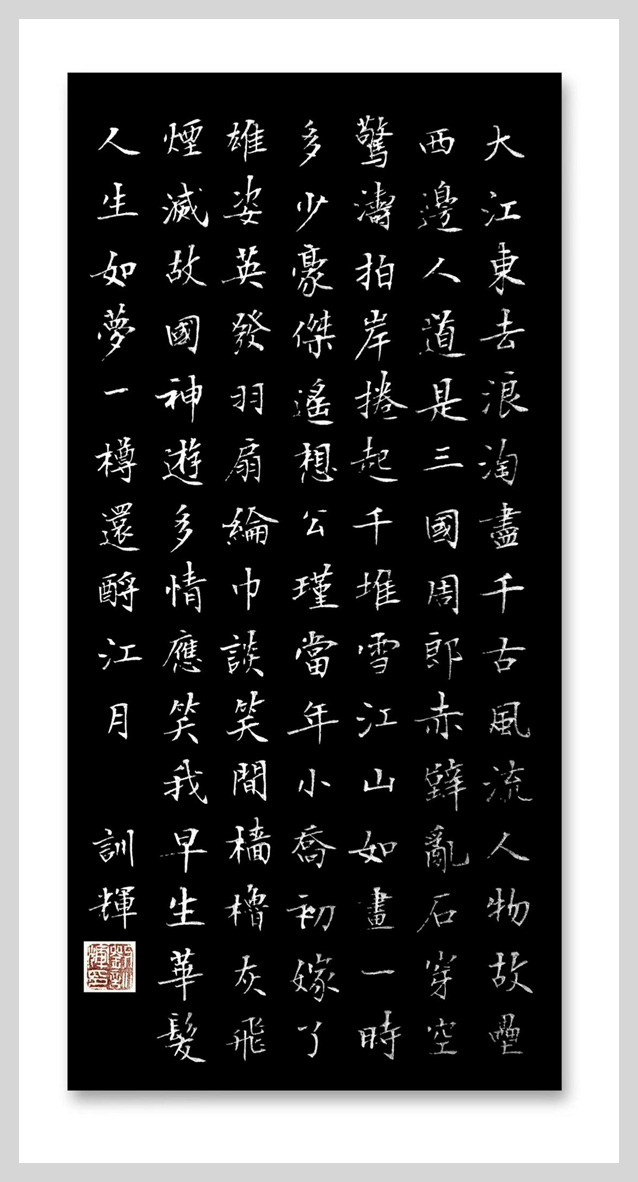 大江東去浪淘盡千古風流人物故壘
西邊人道是三國周郎赤壁亂石穿空
驚濤拍岸捲起千堆雪江山如畫一時
多少豪傑遙想公瑾當年小喬初嫁了
雄姿英發羽扇綸巾談笑間檣櫓灰飛
煙滅故國神遊多情應笑我早生華髮
人生如夢一樽還酹江月 訓輝